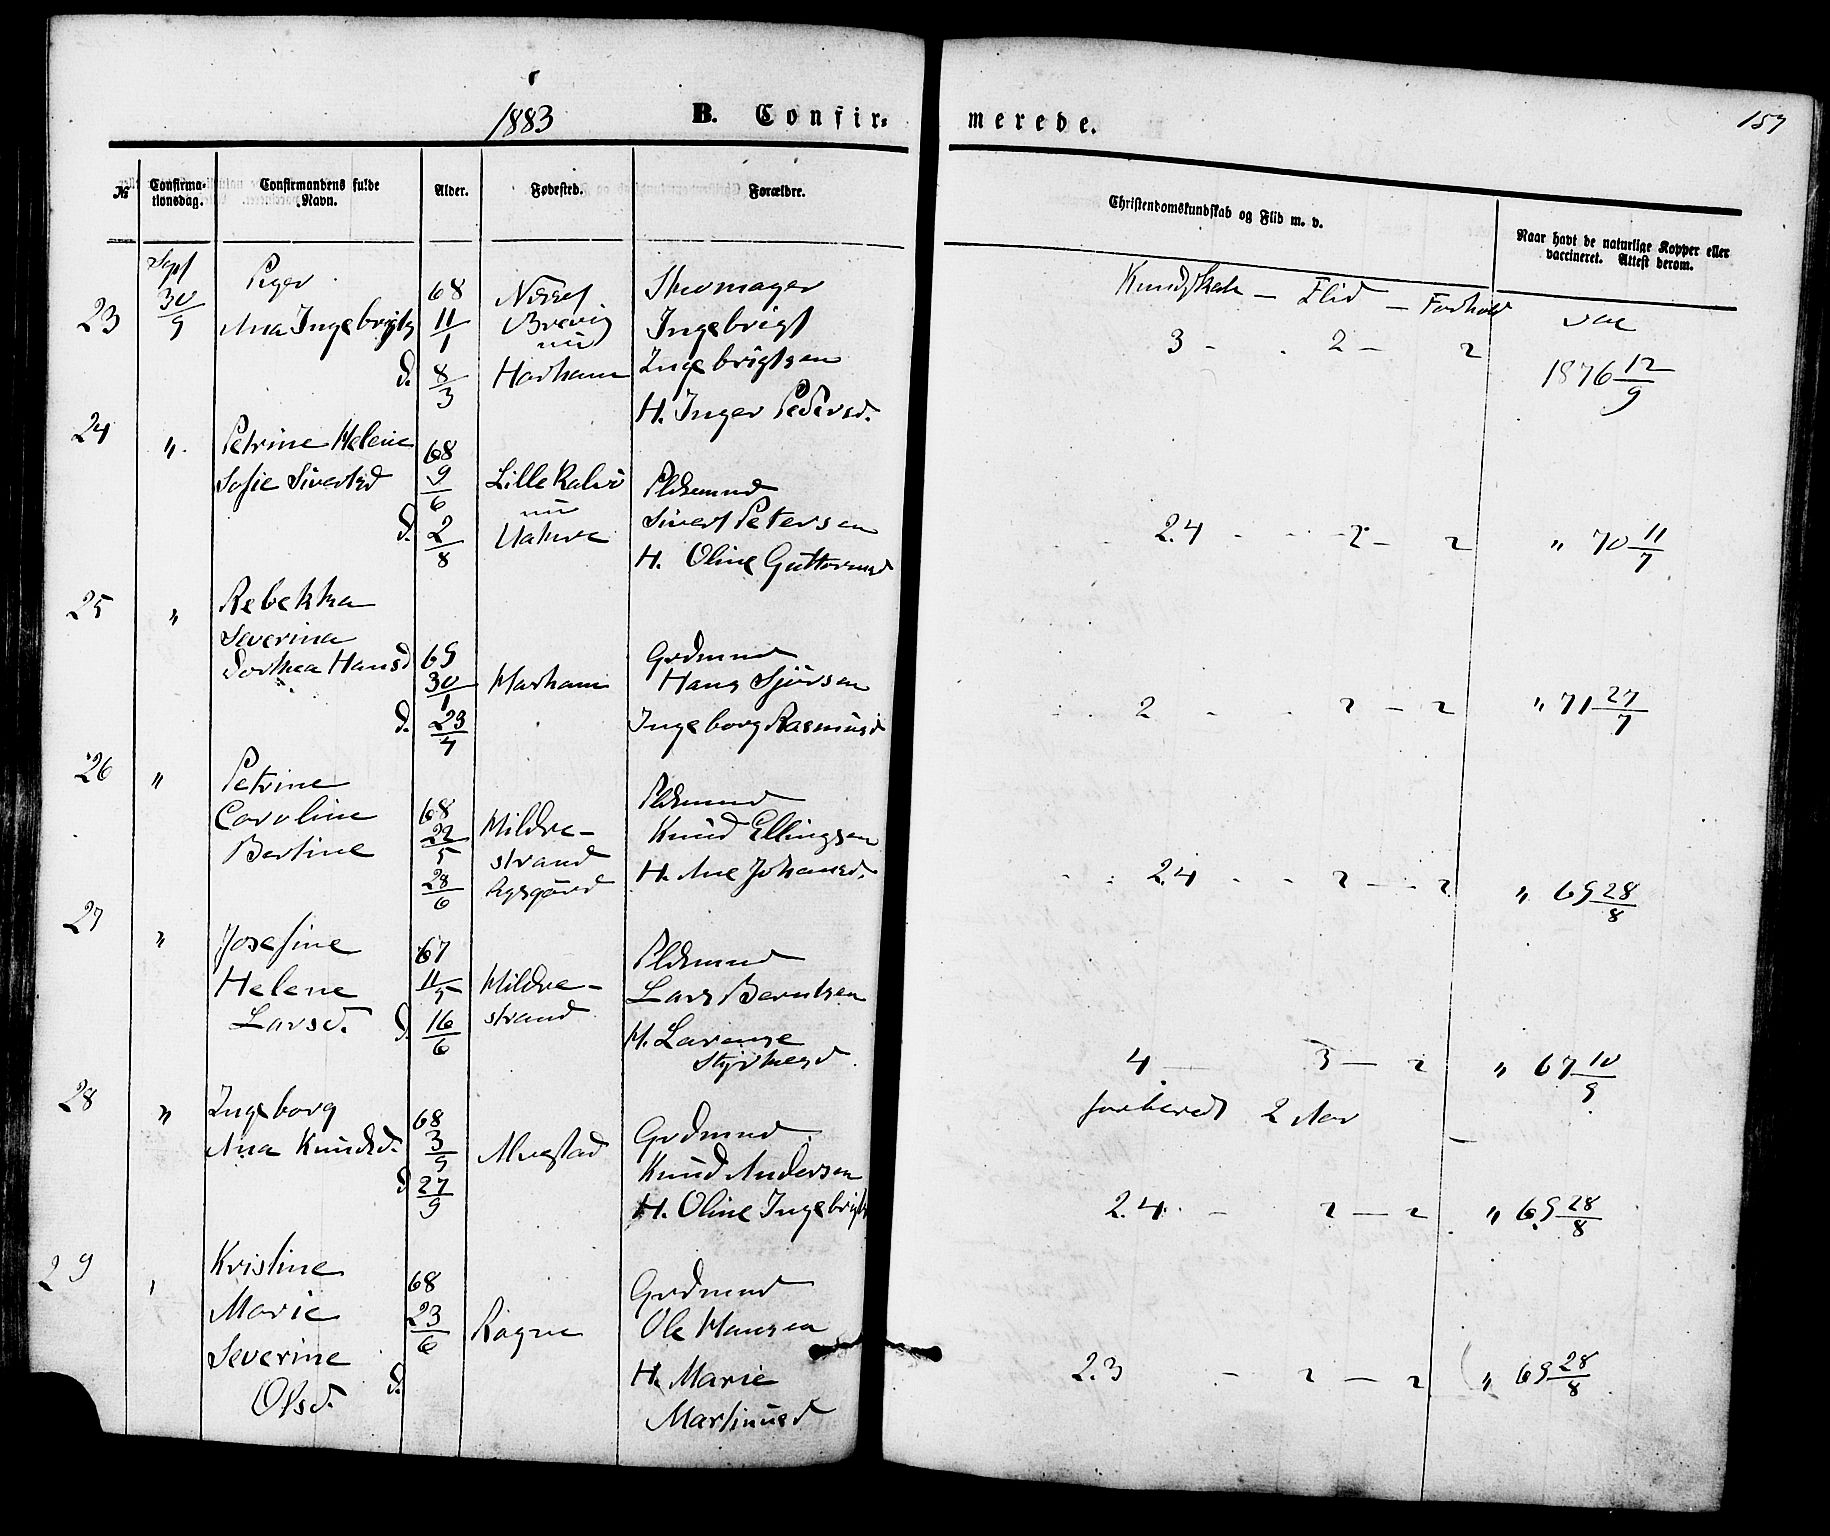 1883 B. Confirmerede. 157
№ Confirmationsdag. Confirmandens fulde Navn. Alder. Fødested. Forældre. Christendomskundskab og Flid m. v. Naar havt de naturlige Kopper eller vaccineret. Attest derom.
Sept Piger Kundskab — Flid — Forhold vac
23 30/9 Ana Ingebrigts d. 68 11/1 d. 8/3
Harham
Skomager
Ingebrigt
Ingebrigtsen
H. Inger Pedersd.
3 - 2 - 2 1876 12/9
24 " Petrine Helene
Sofie Sivertsd 68 9/6 d. 2/8
Lille Kalvø
nu
Pldsmand
Sivert Petersen
H. Oline Guttormsd
2.4 - 2 - 2 " 70 11/7
25 " Rebekka
Severina
Dorthea Hansd 69 30/1 d. 23/4
Harham
Grdmand
Hans Sjursen
Ingeborg Rasmusd
2 - 2 - 2 " 71 27/7
26 " Petrine
Caroline
Bertine 68 22/5 28/6
Mildre-
strand
Pldsmand
Knud Ellingsen
H. Ane Johansd.
2.4 - 2 - 2 " 69 28/8
27 " Josefine
Helene
Larsd. 67 11/5 d. 16/6
Mildre-
strand
Pldsmand
Lars Berntsen
H. Larense
4 - 3 - 2 " 67 10/9
forberedt 2 Aar
28 " Ingeborg
Ana Knudsd. 68 3/9 d 27/9
Alvestad
Grdmand
Knud Andersen
H. Oline Ingebrigts
2.4 - 2 - 2 " 69 28/8
29 " Kristine
Marie
Severine
Olsd. 68 23/6 d.
Rogne
Grdmand
Ole Hansen
H. Marie
Martinusd
2.3 - 2 - 2 " 69 28/8